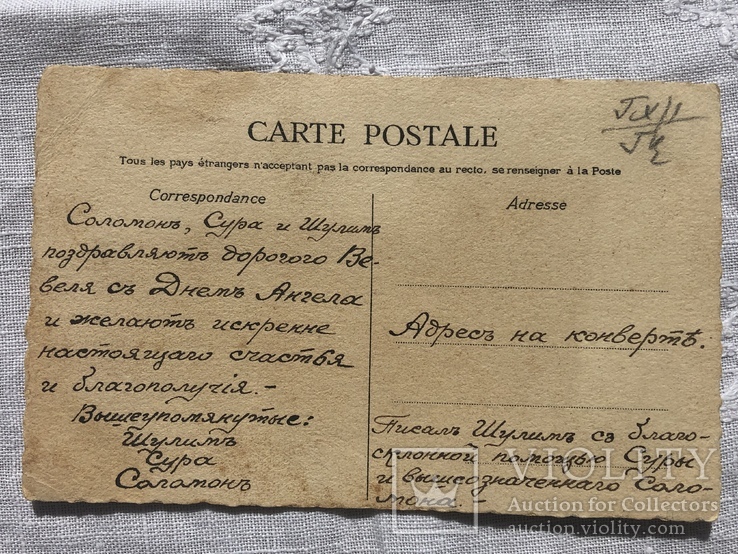 CARTE POSTALE
Tous les pays étrangers n'acceptant pas la correspondance au recto, se renseigner à la Poste
Correspondance
Соломонъ, Сура и Шулимъ
поздравляютъ дорогого Ве-
веля съ Днемъ Ангела
и желаютъ искренне
настоящаго счастья
и благополучія.-
Вышеупомянутые:
Шулимъ
Сура
Соломонъ
Adresse
Адресъ на конвертѣ.
Писалъ Шулимъ съ благо-
склонной помощью Суры
и вышеозначеннаго Соло-
мона.
VIOLITY
Auction for Collectors
auction.violity.com